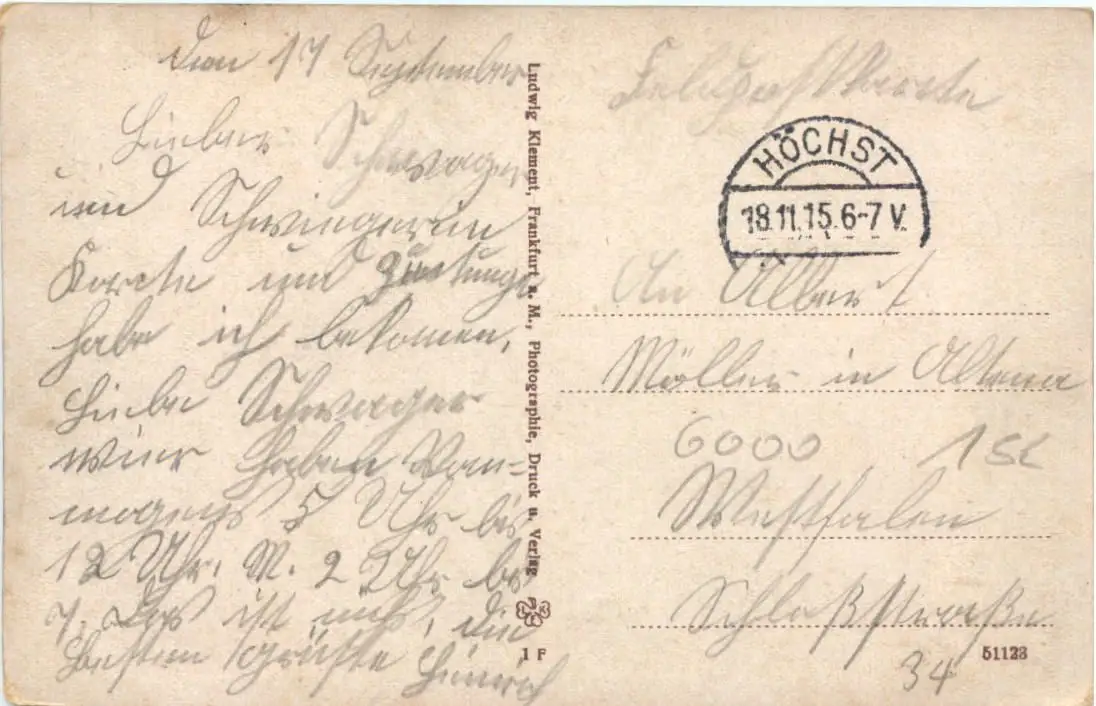 Den 17 September
Lieber Schwager
und Schwiegerin
Karte und Zeitung
habe ich bekomen,
Liebe Schwager
wier haben von
morgens 5 Uhr bis
12 Uhr. M. 2 Uhr bis
7. Das ist was, die
besten Grüße Heinrich
Ludwig Klement, Frankfurt a. M., Photographie, Druck u. Verlag
1 F
Feldpostkarte
HÖCHST
18.11.15.6-7 V.
An Albert
Möller in Altena
6000 1
Westfalen
Schloßstraße
34
51128